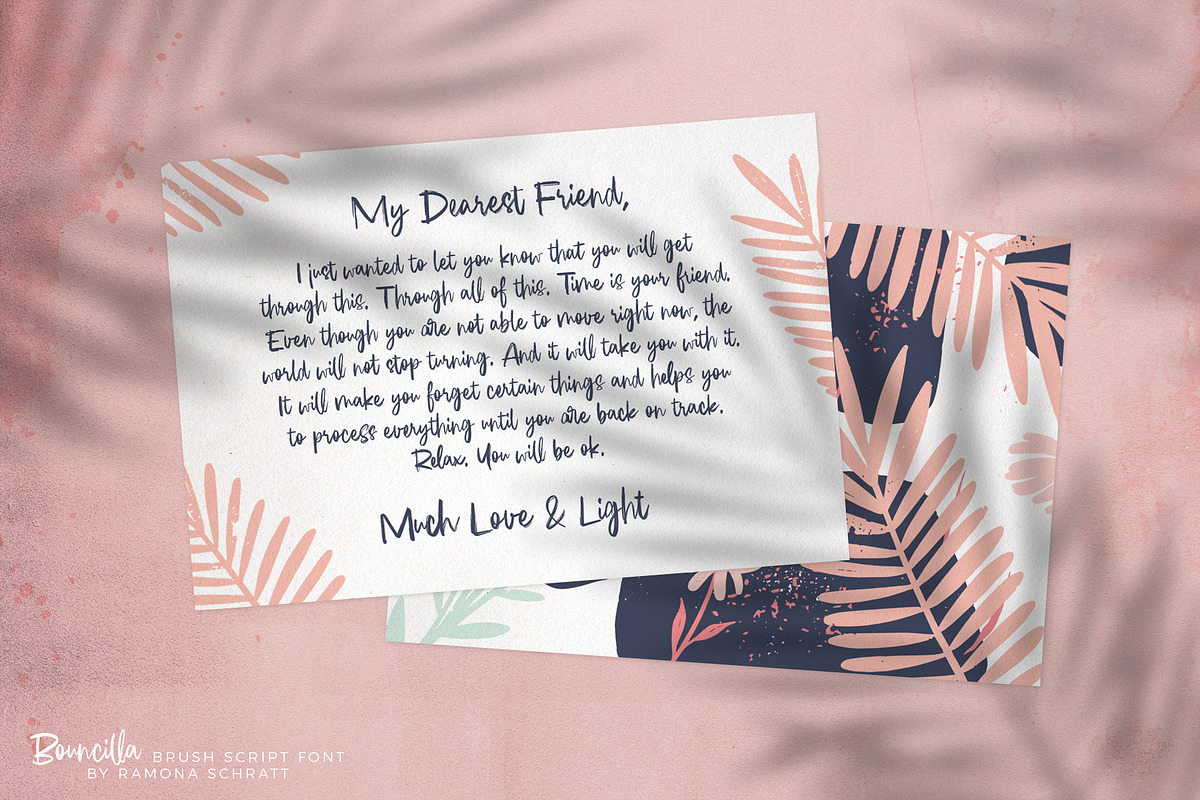 My Dearest Friend,
I just wanted to let you know that you will get
through this. Through all of this. Time is your friend.
Even though you are not able to move right now, the
world will not stop turning. And it will take you with it.
It will make you forget certain things and helps you
to process everything until you are back on track.
Relax. You will be ok.
Much Love & Light
Bouncilla BRUSH SCRIPT FONT
BY RAMONA SCHRATT